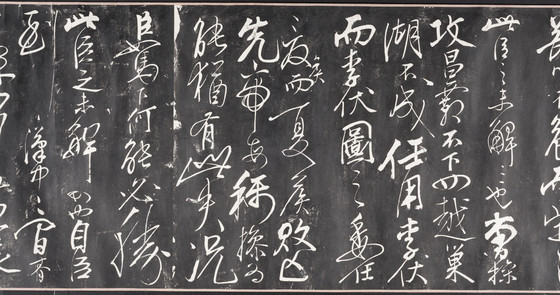 此臣之未解三也曹操
攻昌霸不下四越巢
湖不成任用李伏
而李伏圖之委任
夏侯而夏侯敗亡
先帝每稱操為
能猶有此失況
臣駑下何能必勝
此臣之未解四也自臣
到漢中中間期